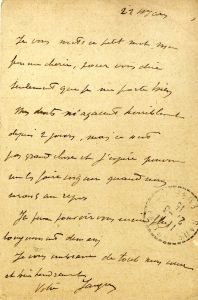 Je vous mets ce petit mot, ma
pour vous dire
seulement que je me porte bien.
Mes dents m'agacent horriblement
depuis 2 jours, mais ce n'est
pas grand chose et j'espère pouvoir
les faire soigner quand nous
serons au repos
Je pense pouvoir vous
longuement demain
Je vous embrasse de tout mon cœur
et bien tendrement
Votre Jacques